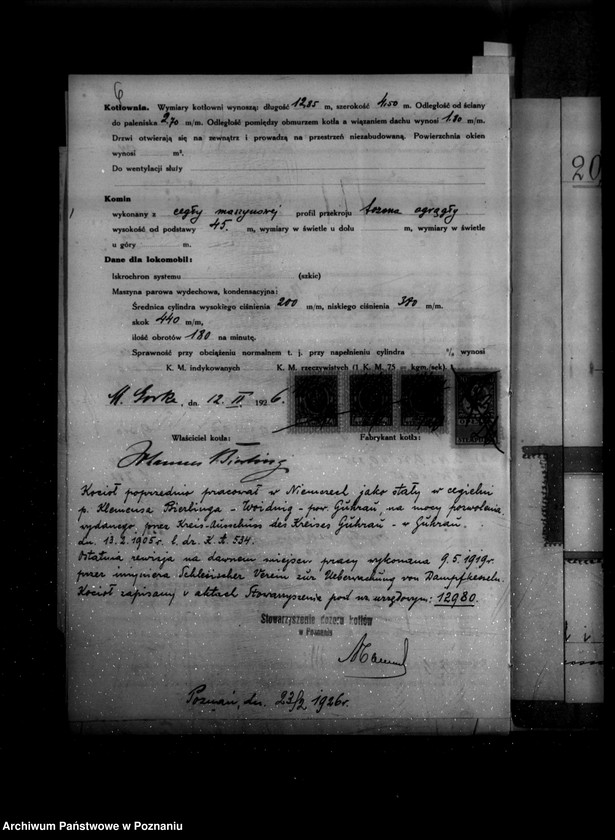 6
Kotłownia. Wymiary kotłowni wynoszą: długość 12,85 m, szerokość 4,50 m. Odległość od ściany
do paleniska 2,70 m/m. Odległość pomiędzy obmurzem kotła a wiązaniem dachu wynosi 1.80 m/m.
Drzwi otwierają się na zewnątrz i prowadzą na przestrzeń niezabudowaną. Powierzchnia okien
wynosi m².
Do wentylacji służy
Komin
wykonany z cegły maszynowej profil przekroju okrągły
wysokość od podstawy 45. m, wymiary w świetle u dołu m, wymiary w świetle
u góry m.
Dane dla lokomobil:
Iskrochron systemu (szkic)
Maszyna parowa wydechowa, kondensacyjna:
Średnica cylindra wysokiego ciśnienia 200 m/m, niskiego ciśnienia 340 m/m.
skok 440 m/m,
ilość obrotów 180 na minutę.
Sprawność przy obciążeniu normalnem t. j. przy napełnieniu cylindra % wynosi
K. M. indykowanych K. M. rzeczywistych (1 K. M. 75 = kgm./sek).
M. Gorka, dn. 12. II. 1926.
Właściciel kotła: Fabrykant kotła:
Kocioł poprzednio pracował w Niemczech jako stały w cegielni
p. Klemensa Bierlinga - Woidnig - pow. Guhrau, na mocy pozwolenia
wydanego przez Kreis-Ausschuss des Kreises Guhrau - w Guhrau.
dn. 13.2.1905 r. l. dz. K. A. 534.
Ostatnia rewizja na dawnem miejscu pracy wykonana 9.5.1919r.
przez inżyniera Schlesischer Verein zür Ueberwachung von Dampfkesseln.
Kocioł zapisany w aktach Stowarzyszenia pod nr. urzędowym: 12980.
Stowarzyszenie dozoru kotłów
w Poznaniu
Poznań, dn. 23/2 1926r.
20
Archiwum Państwowe w Poznaniu